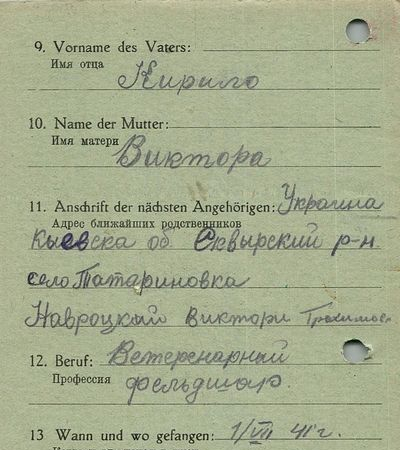 9. Vorname des Vaters:
Имя отца
Кирило
10. Name der Mutter:
Имя матери
Виктора
11. Anschrift der nächsten Angehörigen: Украина
Адрес ближайших родственников
Кыевска об Сквырский р-н
село Татариновка
Навроцкий Виктори
12. Beruf: Ветеренарный
Профессия
фельдшар.
13 Wann und wo gefangen: 1/VII 41 г.